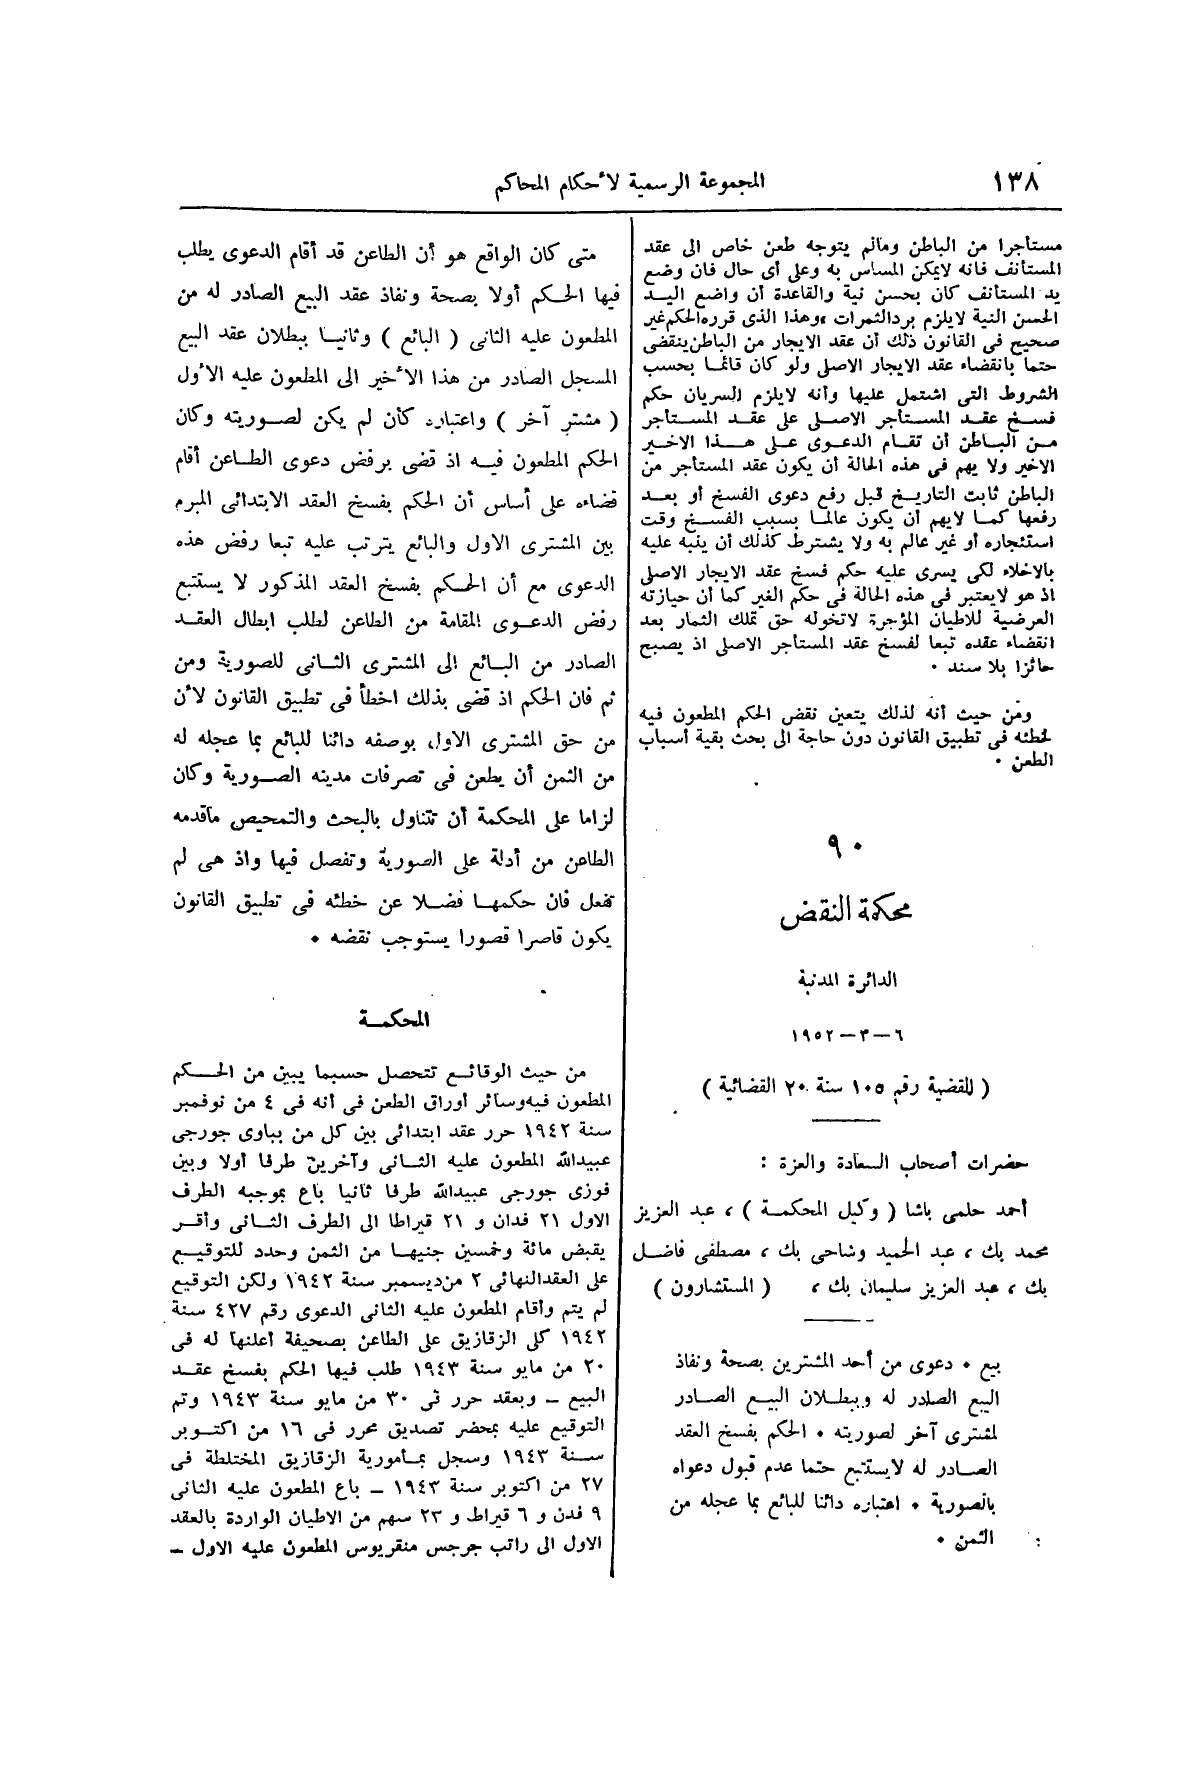 ١٣٨
المجموعة الرسمية لأحكام المحاكم
مستأجرا من الباطن ومالم يتوجه طعن خاص الى عقد
المستأنف فانه لايمكن المساس به وعلى أى حال فان وضع
يد المستأنف كان بحسن نية والقاعدة أن واضع اليد
الحسن النية لايلزم برد الثمرات ،وهذا الذى قرره الحكم غير
صحيح فى القانون ذلك أن عقد الايجار من الباطن ينقضى
حتما بانقضاء عقد الايجار الاصلى ولو كان قائما بحسب
الشروط التى اشتمل عليها وأنه لايلزم السريان حكم
فسخ عقد المستأجر الاصلى على عقد المستأجر
من الباطن أن تقام الدعوى على هذا الاخير
الاخير ولا يهم فى هذه الحالة أن يكون عقد المستأجر من
الباطن ثابت التاريخ قبل رفع دعوى الفسخ أو بعد
رفعها كما لايهم أن يكون عالما بسبب الفسخ وقت
استئجاره أو غير عالم به ولا يشترط كذلك أن ينبه عليه
بالاخلاء لكى يسرى عليه حكم فسخ عقد الايجار الاصلى
اذ هو لايعتبر فى هذه الحالة فى حكم الغير كما أن حيازته
العرضية للاطيان المؤجرة لاتخوله حق تملك الثمار بعد
انقضاء عقده تبعا لفسخ عقد المستأجر الاصلى اذ يصبح
حائزا بلا سند .
ومن حيث أنه لذلك يتعين نقض الحكم المطعون فيه
لخطئه فى تطبيق القانون دون حاجة الى بحث بقية أسباب
الطعن .
٩٠
محكمة النقض
الدائرة المدنية
٦ – ٣ – ١٩٥٢
( القضية رقم ١٠٥ سنة ٢٠ القضائية )
حضرات أصحاب السعادة والعزة :
أحمد حلمى باشا ( وكيل المحكمة ) ، عبد العزيز
محمد بك ، عبد الحميد وشاحى بك ، مصطفى فاضل
بك ، عبد العزيز سليمان بك ، ( المستشارون )
بيع . دعوى من أحد المشترين بصحة ونفاذ
البيع الصادر له وببطلان البيع الصادر
لمشترى آخر لصوريته . الحكم بفسخ العقد
الصادر له لايستتبع حتما عدم قبول دعواه
بالصورية . اعتباره دائنا للبائع بما عجله من
الثمن .
متى كان الواقع هو أن الطاعن قد أقام الدعوى يطلب
فيها الحكم أولا بصحة ونفاذ عقد البيع الصادر له من
المطعون عليه الثانى ( البائع ) وثانيا ببطلان عقد البيع
المسجل الصادر من هذا الأخير الى المطعون عليه الأول
( مشتر آخر ) واعتباره كأن لم يكن لصوريته وكان
الحكم المطعون فيه اذ قضى برفض دعوى الطاعن أقام
قضاءه على أساس أن الحكم بفسخ العقد الابتدائى المبرم
بين المشترى الاول والبائع يترتب عليه تبعا رفض هذه
الدعوى مع أن الحكم بفسخ العقد المذكور لا يستتبع
رفض الدعوى المقامة من الطاعن لطلب ابطال العقد
الصادر من البائع الى المشترى الثانى للصورية ومن
ثم فان الحكم اذ قضى بذلك اخطأ فى تطبيق القانون لأن
من حق المشترى الاول بوصفه دائنا للبائع بما عجله له
من الثمن أن يطعن فى تصرفات مدينه الصورية وكان
لزاما على المحكمة أن تتناول بالبحث والتمحيص ماقدمه
الطاعن من أدلة على الصورية وتفصل فيها واذ هى لم
تفعل فان حكمها فضلا عن خطئه فى تطبيق القانون
يكون قاصرا قصورا يستوجب نقضه .
المحكمة
من حيث الوقائع تتحصل حسبما يبين من الحكم
المطعون فيه وسائر أوراق الطعن فى أنه فى ٤ من نوفمبر
سنة ١٩٤٢ حرر عقد ابتدائى بين كل من بباوى جورجى
عبيدالله المطعون عليه الثانى وآخرين طرفا أولا وبين
فوزى جورجى عبيدالله طرفا ثانيا باع بموجبه الطرف
الاول ٢١ فدان و ٢١ قيراطا الى الطرف الثانى وأقر
بقبض مائة وخمسين جنيها من الثمن وحدد للتوقيع
على العقد النهائى ٢ من ديسمبر سنة ١٩٤٢ ولكن التوقيع
لم يتم وأقام المطعون عليه الثانى الدعوى رقم ٤٢٧ سنة
١٩٤٢ كلى الزقازيق على الطاعن بصحيفة أعلنها له فى
٢٠ من مايو سنة ١٩٤٣ طلب فيها الحكم بفسخ عقد
البيع – وبعقد حرر فى ٣٠ من مايو سنة ١٩٤٣ وتم
التوقيع عليه بمحضر تصديق محرر فى ١٦ من اكتوبر
سنة ١٩٤٣ وسجل بمأمورية الزقازيق المختلطة فى
٢٧ من اكتوبر سنة ١٩٤٣ – باع المطعون عليه الثانى
٩ فدن و ٦ قيراط و ٢٣ سهم من الاطيان الواردة بالعقد
الاول الى راتب جرجس منقريوس المطعون عليه الاول –